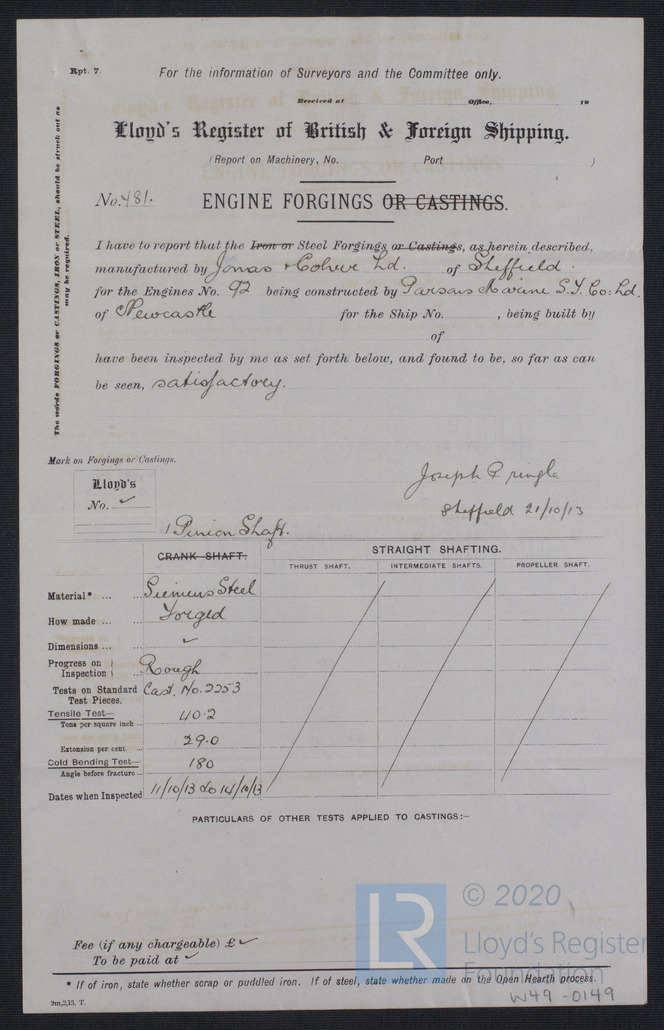 Rpt. 7.
For the information of Surveyors and the Committee only.
Received at Office, 19
Lloyd's Register of British & Foreign Shipping.
(Report on Machinery, No. Port )
No. 481. ENGINE FORGINGS OR CASTINGS.
The words FORGINGS or CASTINGS, IRON or STEEL, should be struck out as
may be required.
I have to report that the Iron or Steel Forgings or Castings, as herein described,
manufactured by Jonas & Colver Ld. of Sheffield.
for the Engines No. 92 being constructed by Parsons Marine S.T. Co: Ld.
of Newcastle for the Ship No. , being built by
of
have been inspected by me as set forth below, and found to be, so far as can
be seen, satisfactory.
Mark on Forgings or Castings.
Lloyd's
No. ✓
Joseph Pringle
Sheffield 21/10/13
1 Pinion Shaft.
CRANK SHAFT. STRAIGHT SHAFTING.
THRUST SHAFT. INTERMEDIATE SHAFTS. PROPELLER SHAFT.
Material* ... ... Siemens Steel
How made ... ... Forged
Dimensions ... ... ✓
Progress on Inspection ... Rough
Tests on Standard Test Pieces. Cast. No. 2253
Tensile Test—
Tons per square inch ... 40.2
Extension per cent ... 29.0
Cold Bending Test—
Angle before fracture ... 180
Dates when Inspected 11/10/13 to 14/10/13
PARTICULARS OF OTHER TESTS APPLIED TO CASTINGS:—
Fee (if any chargeable) £ ✓
To be paid at ✓
* If of iron, state whether scrap or puddled iron. If of steel, state whether made on the Open Hearth process.
2m,2,13. T.
W49-0149
LR
© 2020
Lloyd's Register
Foundation